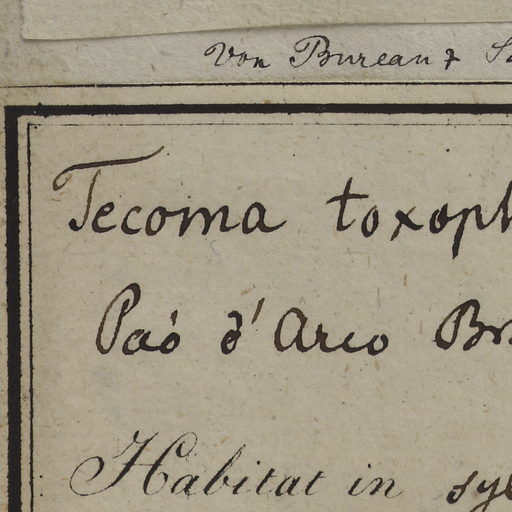 Von Bureau &
Tecoma toxoph
Paó d'Arco Br
Habitat in syl